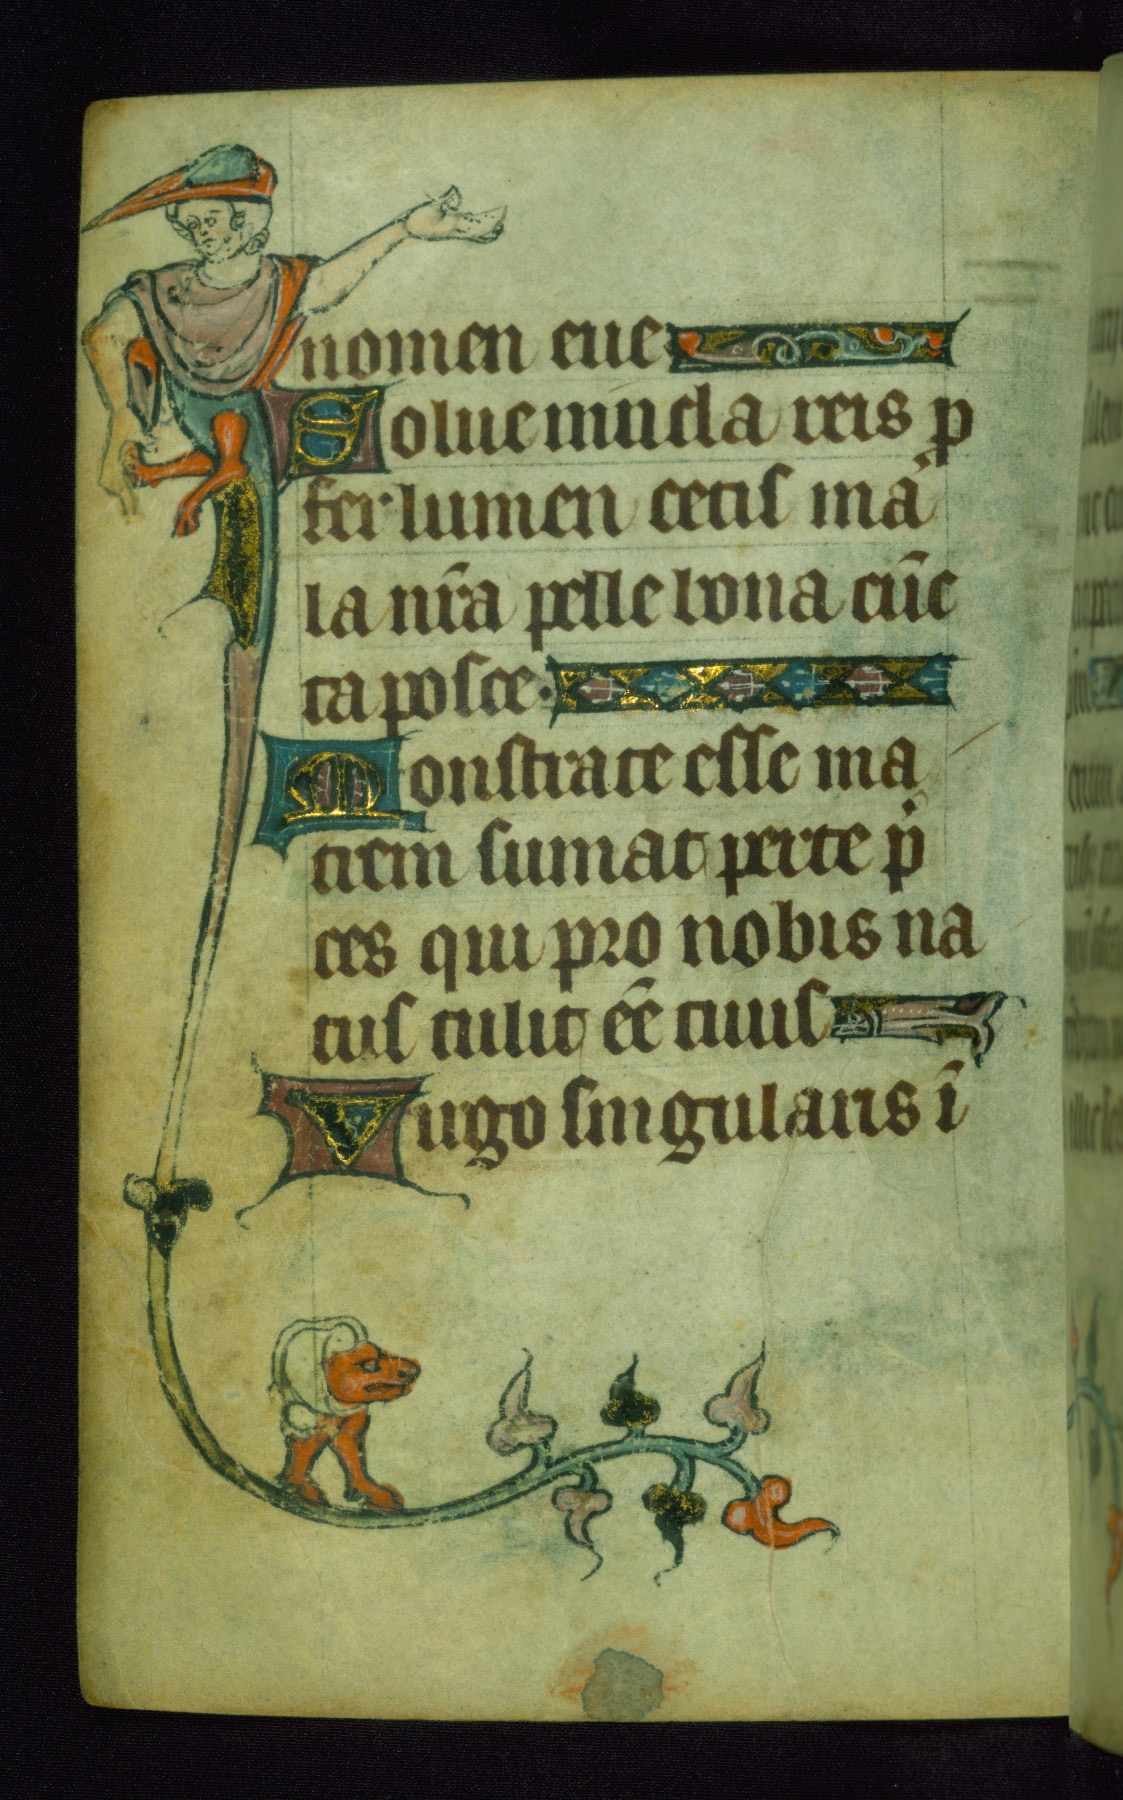 nomen eue
Solue mncla reis p
fer lumen cecis ma
la nr̄a pelle bona cūc
ta posce.
Monstra te esse ma
trem sumat per te p̄
ces qui pro nobis na
tus tulit eē tuus
Uirgo singularis ī